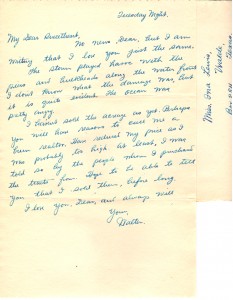 Tuesday Night.
My Dear Sweetheart,
No news, Dear, but I am
writing that I love you just the same.
The storm played havoc with the
piers and bulkheads along the water front
I don't know what the damage was, but
it is quite evident. The ocean was
pretty angry.
I haven't sold the acreage as yet. Perhaps
you will have reasons to call me a
poor realtor. Have reduced my price as I
was probably too high at least, I was
told so by the people whom I purchased
the tracts from. Hope to be able to tell
you that I sold them, before long.
I love you, Dear, and always will
Your,
Walter.
Miss Ina Lewis,
Uvalde,
Texas,
Box 274